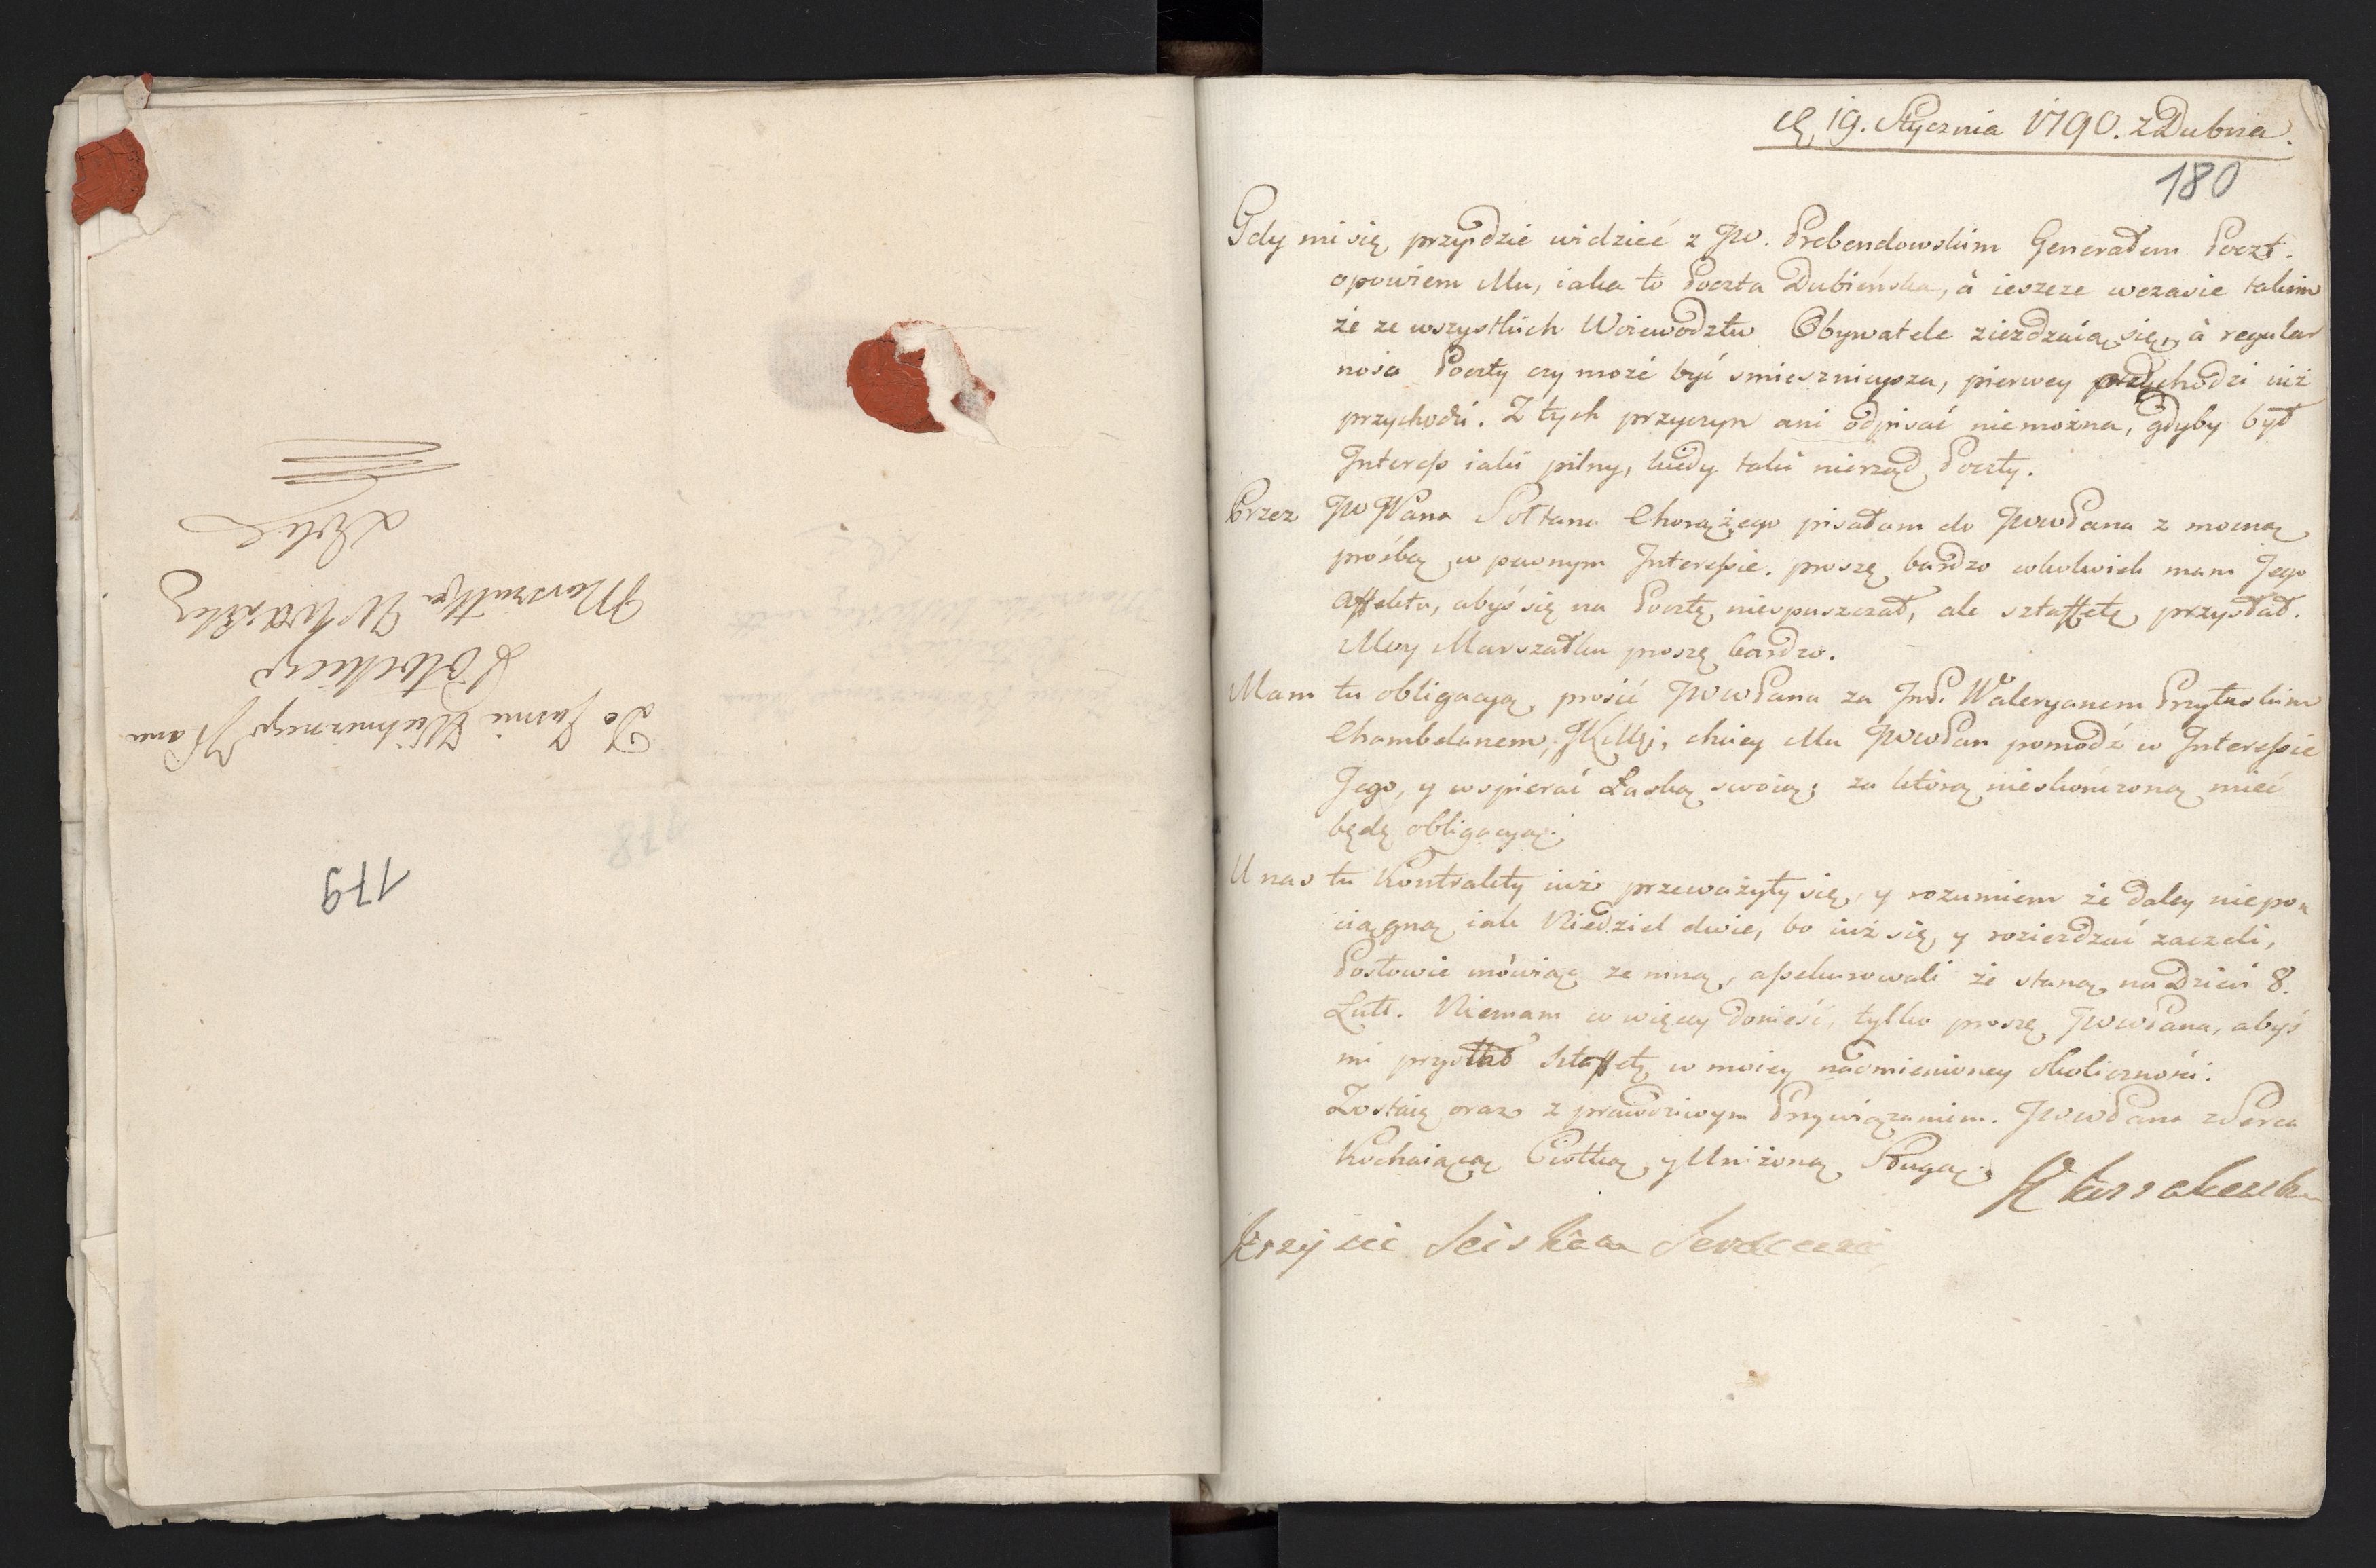 Do Jaśnie Wielmożnego JPana
Potockiego
Marszałka W. W. X. Litt
179
19. Stycznia 1790. z Dubna.
180
Gdy mi się przyidzie widzieć z JW. Prebendowskim Generałem Poczt.
opowiem Mu, iaka to Poczta Dubieńska, à ieszcze wczasie takim
że ze wszystkich Woiewodztw Obywatele zieżdzaią się, à regular
nosc Poczty czy może być smiesznieysza, pierwey odchodzi niż
przychodzi. Z tych przyczyn ani odpisać niemożna, gdyby był
Interess iaki pilny, kiedy taki nierząd Poczty.
Przez JW JPana Sołtana Chorążego pisałam do JWWPana z mocną
prośbą w pewnym Interessie. proszę bardzo cokolwiek mam Jego
Affektu, abyś się na Pocztę niespuszczał, ale sztaffetę przysłał.
Moy Marszałku proszę bardzo.
Mam tu obligacyą, prosić JWWPana za JmP. Waleryanem Przyłuskim
Chambelanem JKMći, chciey Mu JWWPan pomodź w Interessie
Jego, y wspierać Łaską swoią; za którą nieskończoną mieć
będę obligacyą.
U nas tu Kontrakty iuż przeważyły się, y rozumiem że daley niepo
ciągną iak Niedziel dwie, bo iuż się y rozieżdzać zaczeli,
Posłowie mówiąc ze mną, assekurowali że staną na Dzień 8.
Lutt. Niemam co więcey donieść, tylko proszę JWWPana, abyś
mi przysłał Sztaffetę w moiey nadmienioney okoliczności.
Zostaię oraz z prawdziwym Przywiązaniem. JWWPana z Serca
Kochaiącą Ciotką y Uniżoną Sługą.
Kossakowska
Krzysię Sciskam Serdecznie